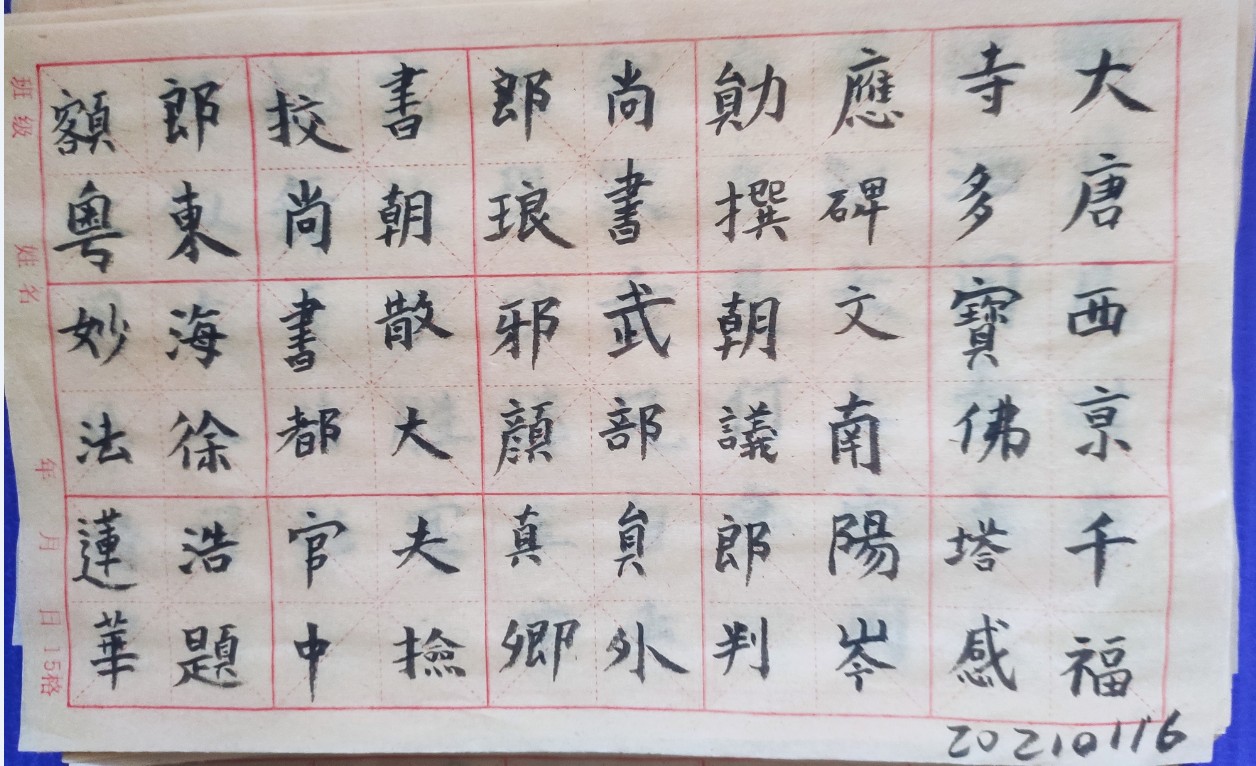 大唐西京千福
寺多寶佛塔感
應碑文南陽岑
勛撰朝議郎判
尚書武部員外
郎琅邪顏真卿
書朝散大夫撿
挍尚書都官中
郎東海徐浩題
額粵妙法蓮華
班级 姓名 年 月 日 15格
20210116